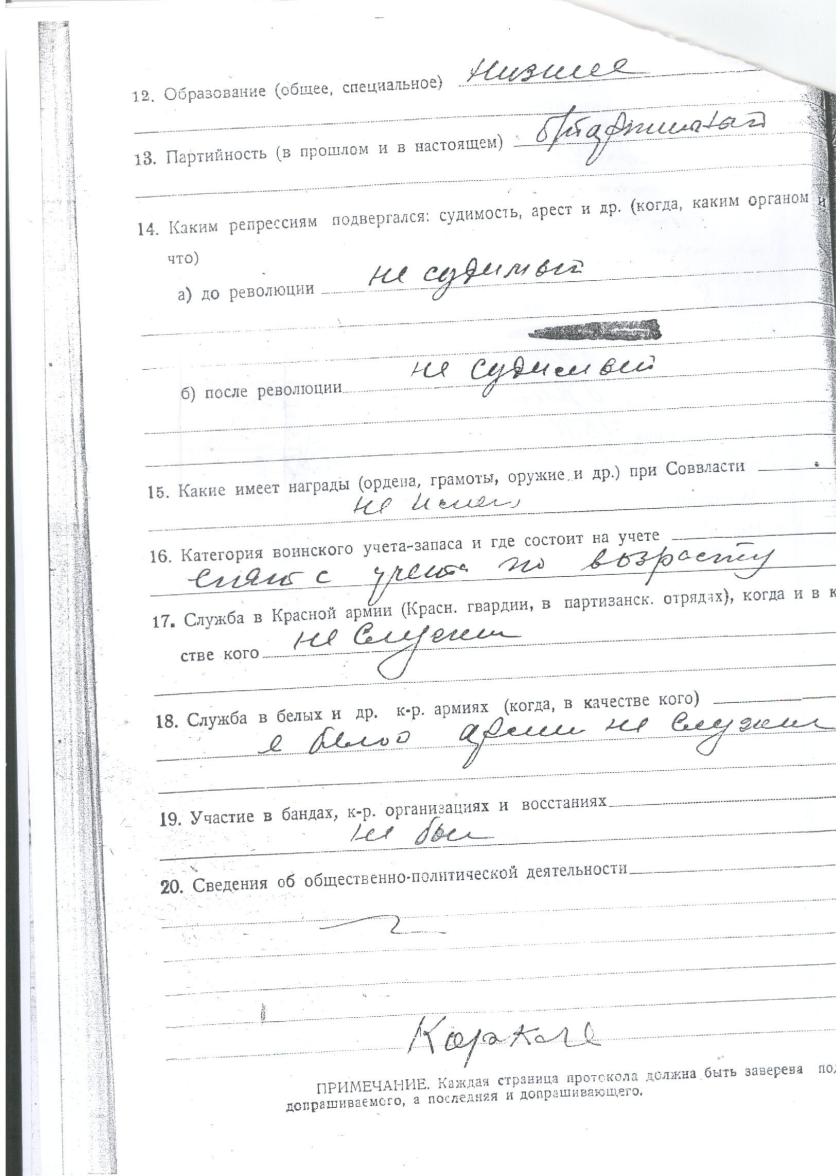 12. Образование (общее, специальное) Низшее
13. Партийность (в прошлом и в настоящем) б/партийный
14. Каким репрессиям подвергался: судимость, арест и др. (когда, каким органом и
что)
а) до революции не судимый
б) после революции не судимый
15. Какие имеет награды (ордена, грамоты, оружие и др.) при Соввласти
не имеет
16. Категория воинского учета-запаса и где состоит на учете
снят с учета по возрасту
17. Служба в Красной армии (Красн. гвардии, в партизанск. отрядах), когда и в к
стве кого не служил
18. Служба в белых и др. к-р. армиях (когда, в качестве кого)
в белой армии не служил
19. Участие в бандах, к-р. организациях и восстаниях
не был
20. Сведения об общественно-политической деятельности
ПРИМЕЧАНИЕ. Каждая страница протокола должна быть заверена по
допрашиваемого, а последняя и допрашивающего.